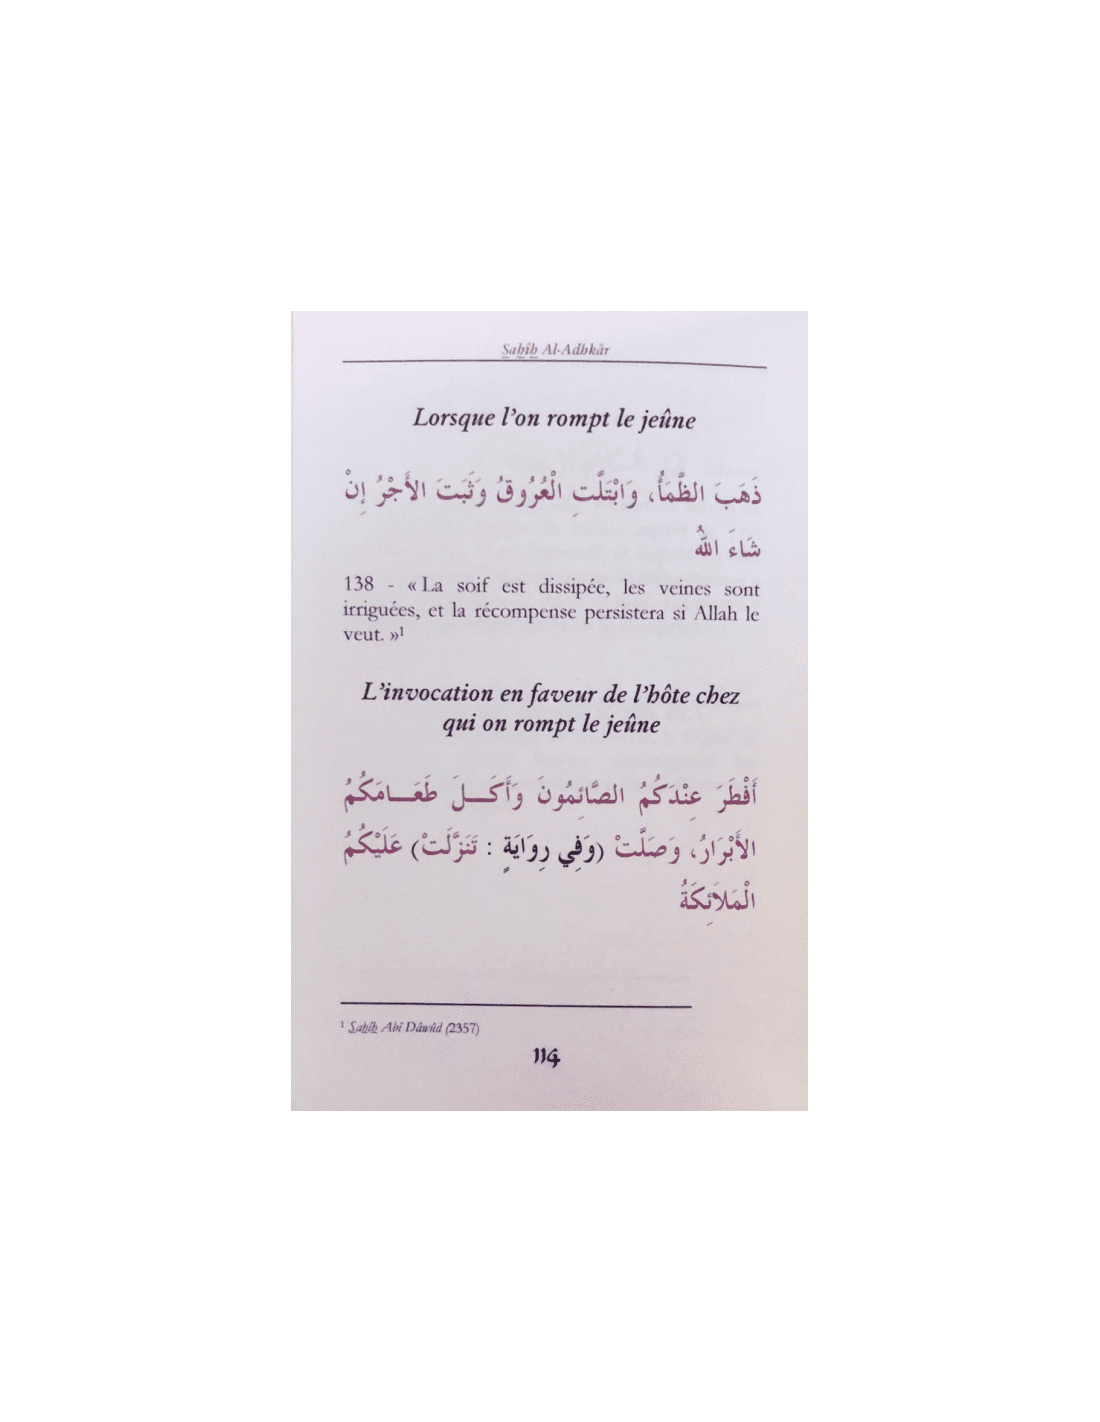 Sahîh Al-Adhkâr
Lorsque l'on rompt le jeûne
ذَهَبَ الظَّمَأُ، وَابْتَلَّتِ الْعُرُوقُ وَثَبَتَ الأَجْرُ إِنْ
شَاءَ اللهُ
138 - « La soif est dissipée, les veines sont
irriguées, et la récompense persistera si Allah le
veut. »¹
L'invocation en faveur de l'hôte chez
qui on rompt le jeûne
أَفْطَرَ عِنْدَكُمُ الصَّائِمُونَ وَأَكَــلَ طَعَــامَكُمُ
الأَبْرَارُ، وَصَلَّتْ (وَفِي رِوَايَةٍ : تَنَزَّلَتْ) عَلَيْكُمُ
الْمَلاَئِكَةُ
¹ Sahîh Abî Dâwûd (2357)
114